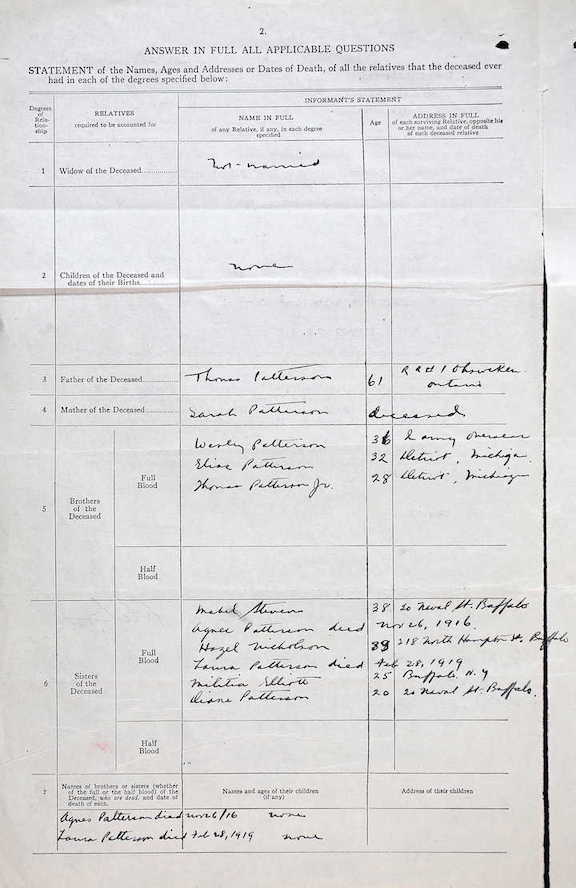 2.
ANSWER IN FULL ALL APPLICABLE QUESTIONS
STATEMENT of the Names, Ages and Addresses or Dates of Death, of all the relatives that the deceased ever
had in each of the degrees specified below:
INFORMANT'S STATEMENT
Degrees of Rela-tion-ship
RELATIVES
required to be accounted for
NAME IN FULL
of any Relative, if any, in each degree
specified
Age
ADDRESS IN FULL
of each surviving Relative, opposite his
or her name, and date of death
of each deceased relative
1 Widow of the Deceased............... Not-married
2 Children of the Deceased and
dates of their Births. none
3 Father of the Deceased............... Thomas Patterson 61 R R # 1 Ohsweken
Ontario
4 Mother of the Deceased............... Sarah Patterson deceased
5 Brothers
of the
Deceased
Full
Blood
Wesley Patterson 36 In army Overseas
Elias Patterson 32 Detroit, Michigan
Thomas Patterson Jr. 28 Detroit, Michigan
Half
Blood
6 Sisters
of the
Deceased
Full
Blood
Mabel Stevens 38 20 Naval St. Buffalo
Agnes Patterson died Nov 26, 1916.
Hazel Nicholson 218 North Hampton St, Buffalo
Laura Patterson died Feb 28, 1919
Militia Elliott 25 Buffalo N. Y
Patterson 20 20 Naval St. Buffalo.
Half
Blood
7 Names of brothers or sisters (whether
of the full or the half blood) of the
Deceased, who are dead, and date of
death of each.
Names and ages of their children
(if any)
Address of their children
Agnes Patterson died Nov 26/16 none
Laura Patterson died Feb 28, 1919 none